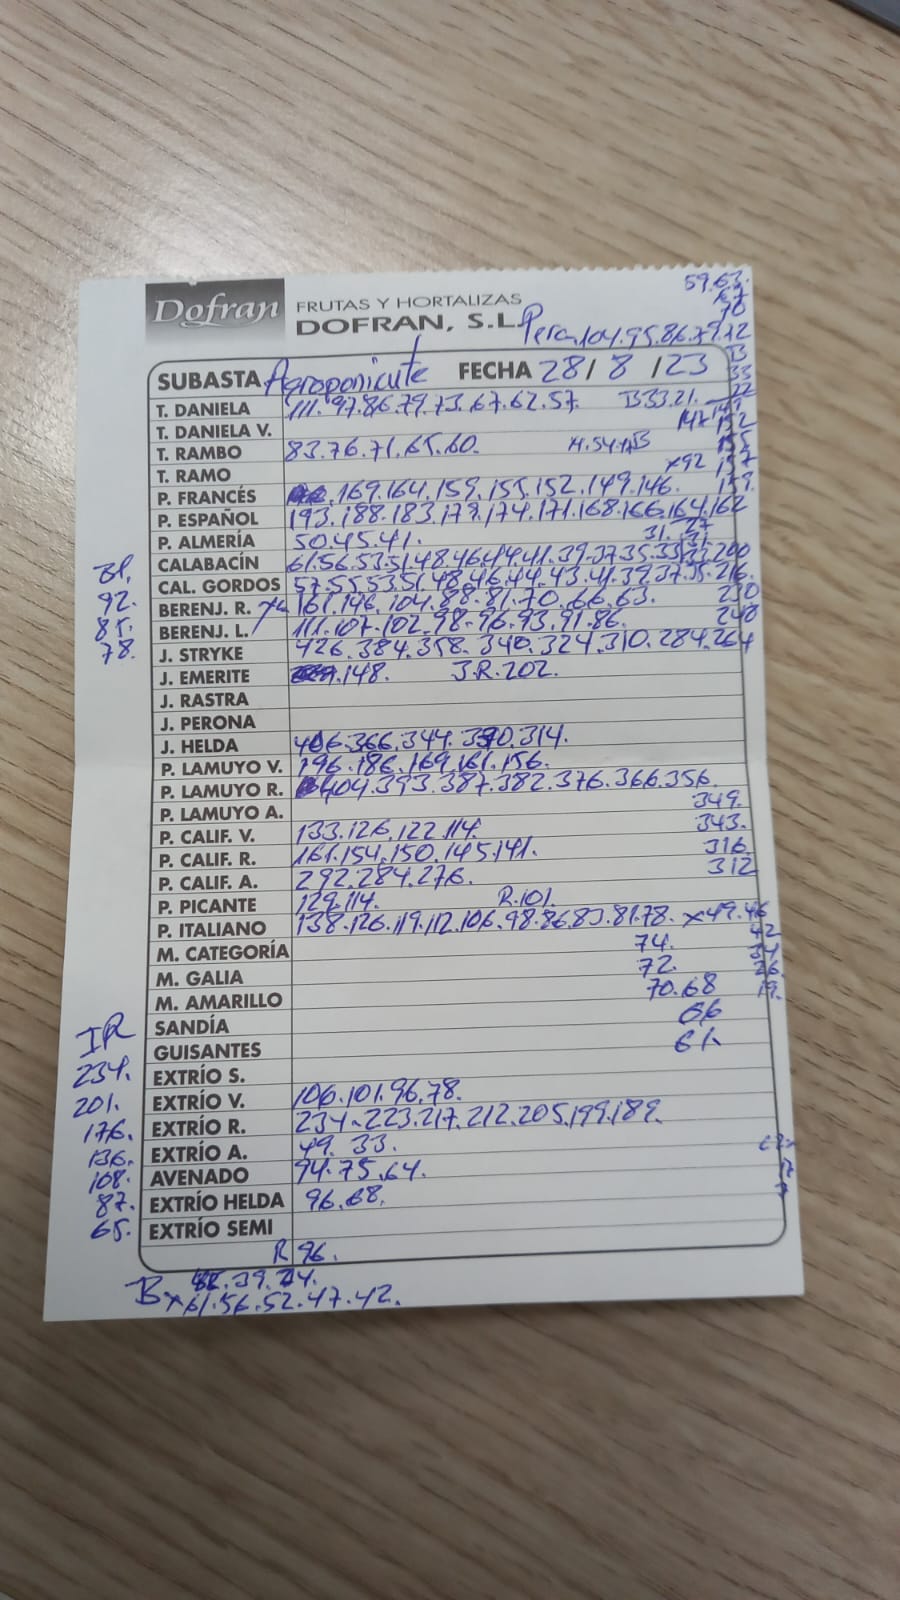 59.63.
67
70
Dofran FRUTAS Y HORTALIZAS
DOFRAN, S.L.
Pera.104.95.86.79.72
SUBASTA Agroponiente FECHA 28/8/23
T. DANIELA 111.97.86.79.73.67.62.57. B33.21.
T. DANIELA V.
T. RAMBO 83.76.71.65.60.
T. RAMO x92 157
P. FRANCÉS .169.164.159.155.152.149.146. 159.
P. ESPAÑOL 193.188.183.179.174.171.168.166.164.162
P. ALMERÍA 50.45.41. 31.27
CALABACÍN 61.56.53.51.48.46.44.41.39.37.35.33 200
CAL. GORDOS 57.55.53.51.48.46.44.43.41.39.37.35.216.
BERENJ. R. 161.146.104.88.81.70.66.63. 230
BERENJ. L. 111.107.102.98.96.93.91.86. 248
J. STRYKE 426.384.358.340.324.310.284.264
J. EMERITE .148. J.R.202.
J. RASTRA
J. PERONA
J. HELDA 406.366.344. .314.
P. LAMUYO V. 196.186.169.161.156.
P. LAMUYO R. 404.393.387.382.376.366.356.
P. LAMUYO A. 349.
P. CALIF. V. 133.126.122.114. 343.
P. CALIF. R. 161.154.150.145.141. 316.
P. CALIF. A. 292.284.276. 312
P. PICANTE 129.114. R.101.
P. ITALIANO 138.126.119.112.106.98.86.83.81.78. x49.46
M. CATEGORÍA 74. 42
M. GALIA 72. 34
M. AMARILLO 70.68 26.
19.
SANDÍA 66
GUISANTES 61.
EXTRÍO S.
EXTRÍO V. 106.101.96.78.
EXTRÍO R. 234.223.217.212.205.199.189.
EXTRÍO A. 49.33.
AVENADO 94.75.64.
EXTRÍO HELDA 96.68.
EXTRÍO SEMI
R 96.
B .39.
x61.56.52.47.42.
Bl.
92.
85.
78.
IR
234.
201.
176.
136.
108.
87.
65.